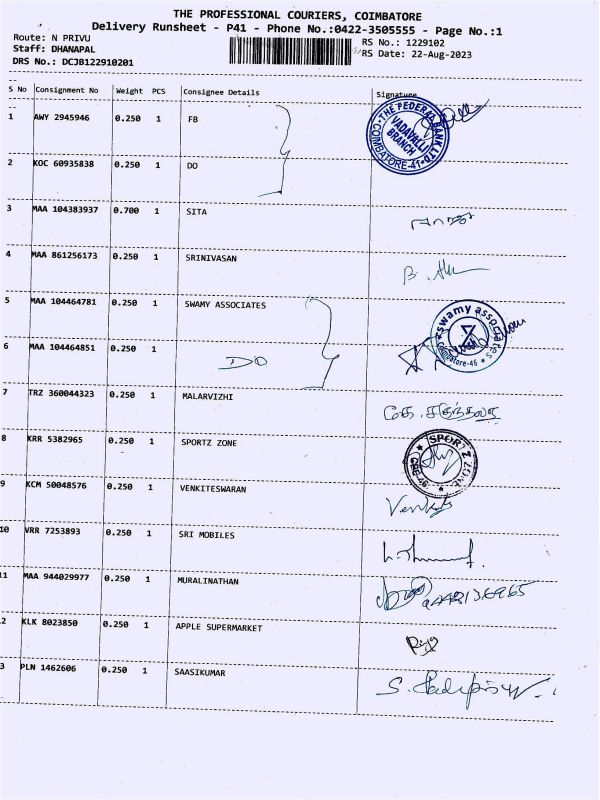 THE PROFESSIONAL COURIERS, COIMBATORE
Delivery Runsheet - P41 - Phone No.:0422-3505555 - Page No.:1
Route: N PRIVU RS No.: 1229102
Staff: DHANAPAL RS Date: 22-Aug-2023
DRS No.: DCJB122910201
S No Consignment No Weight PCS Consignee Details Signature
1 AWY 2945946 0.250 1 FB
THE FEDERAL BANK LTD. VADAVALLI BRANCH COIMBATORE-41
2 KOC 60935838 0.250 1 DO
3 MAA 104383937 0.700 1 SITA
4 MAA 861256173 0.250 1 SRINIVASAN
5 MAA 104464781 0.250 1 SWAMY ASSOCIATES
swamy associates Coimbatore-46
6 MAA 104464851 0.250 1 DO
7 TRZ 360044323 0.250 1 MALARVIZHI
8 KRR 5382965 0.250 1 SPORTZ ZONE
SPORTZ ZONE CBE-46
9 KCM 50048576 0.250 1 VENKITESWARAN
10 VRR 7253893 0.250 1 SRI MOBILES
11 MAA 944029977 0.250 1 MURALINATHAN
2 KLK 8023850 0.250 1 APPLE SUPERMARKET
3 PLN 1462606 0.250 1 SAASIKUMAR